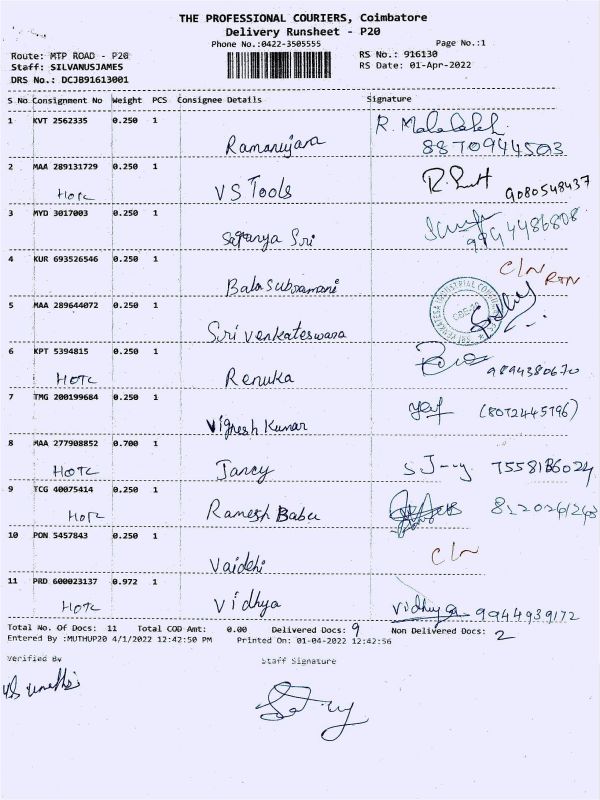 THE PROFESSIONAL COURIERS, Coimbatore
Delivery Runsheet - P20
Phone No.:0422-3505555 Page No.:1
Route: MTP ROAD - P20 RS No.: 916130
Staff: SILVANUSJAMES RS Date: 01-Apr-2022
DRS No.: DCJB91613001
S No Consignment No Weight PCS Consignee Details Signature
1 KVT 2562335 0.250 1
Ramanujam 8870944503
2 MAA 289131729 0.250 1
HOTC VS Tools 9080548437
3 MYD 3017003 0.250 1
Saranya Sri
4 KUR 693526546 0.250 1 C/N RTN
Balasubramani
5 MAA 289644072 0.250 1
Sri Venkateswara
6 KPT 5394815 0.250 1
HOTC Renuka 9894380670
7 TMG 200199684 0.250 1 (8072445796)
Vignesh Kumar
8 MAA 277908852 0.700 1
HOTC Jancy
9 TCG 40075414 0.250 1
HOTC Ramesh Babu
10 PON 5457843 0.250 1 C/N
Vaidehi
11 PRD 600023137 0.972 1
HOTC Vidhya Vidhya 9944939172
Total No. Of Docs: 11 Total COD Amt: 0.00 Delivered Docs: 9 Non Delivered Docs: 2
Entered By :MUTHUP20 4/1/2022 12:42:50 PM Printed On: 01-04-2022 12:42:56
Verified By Staff Signature